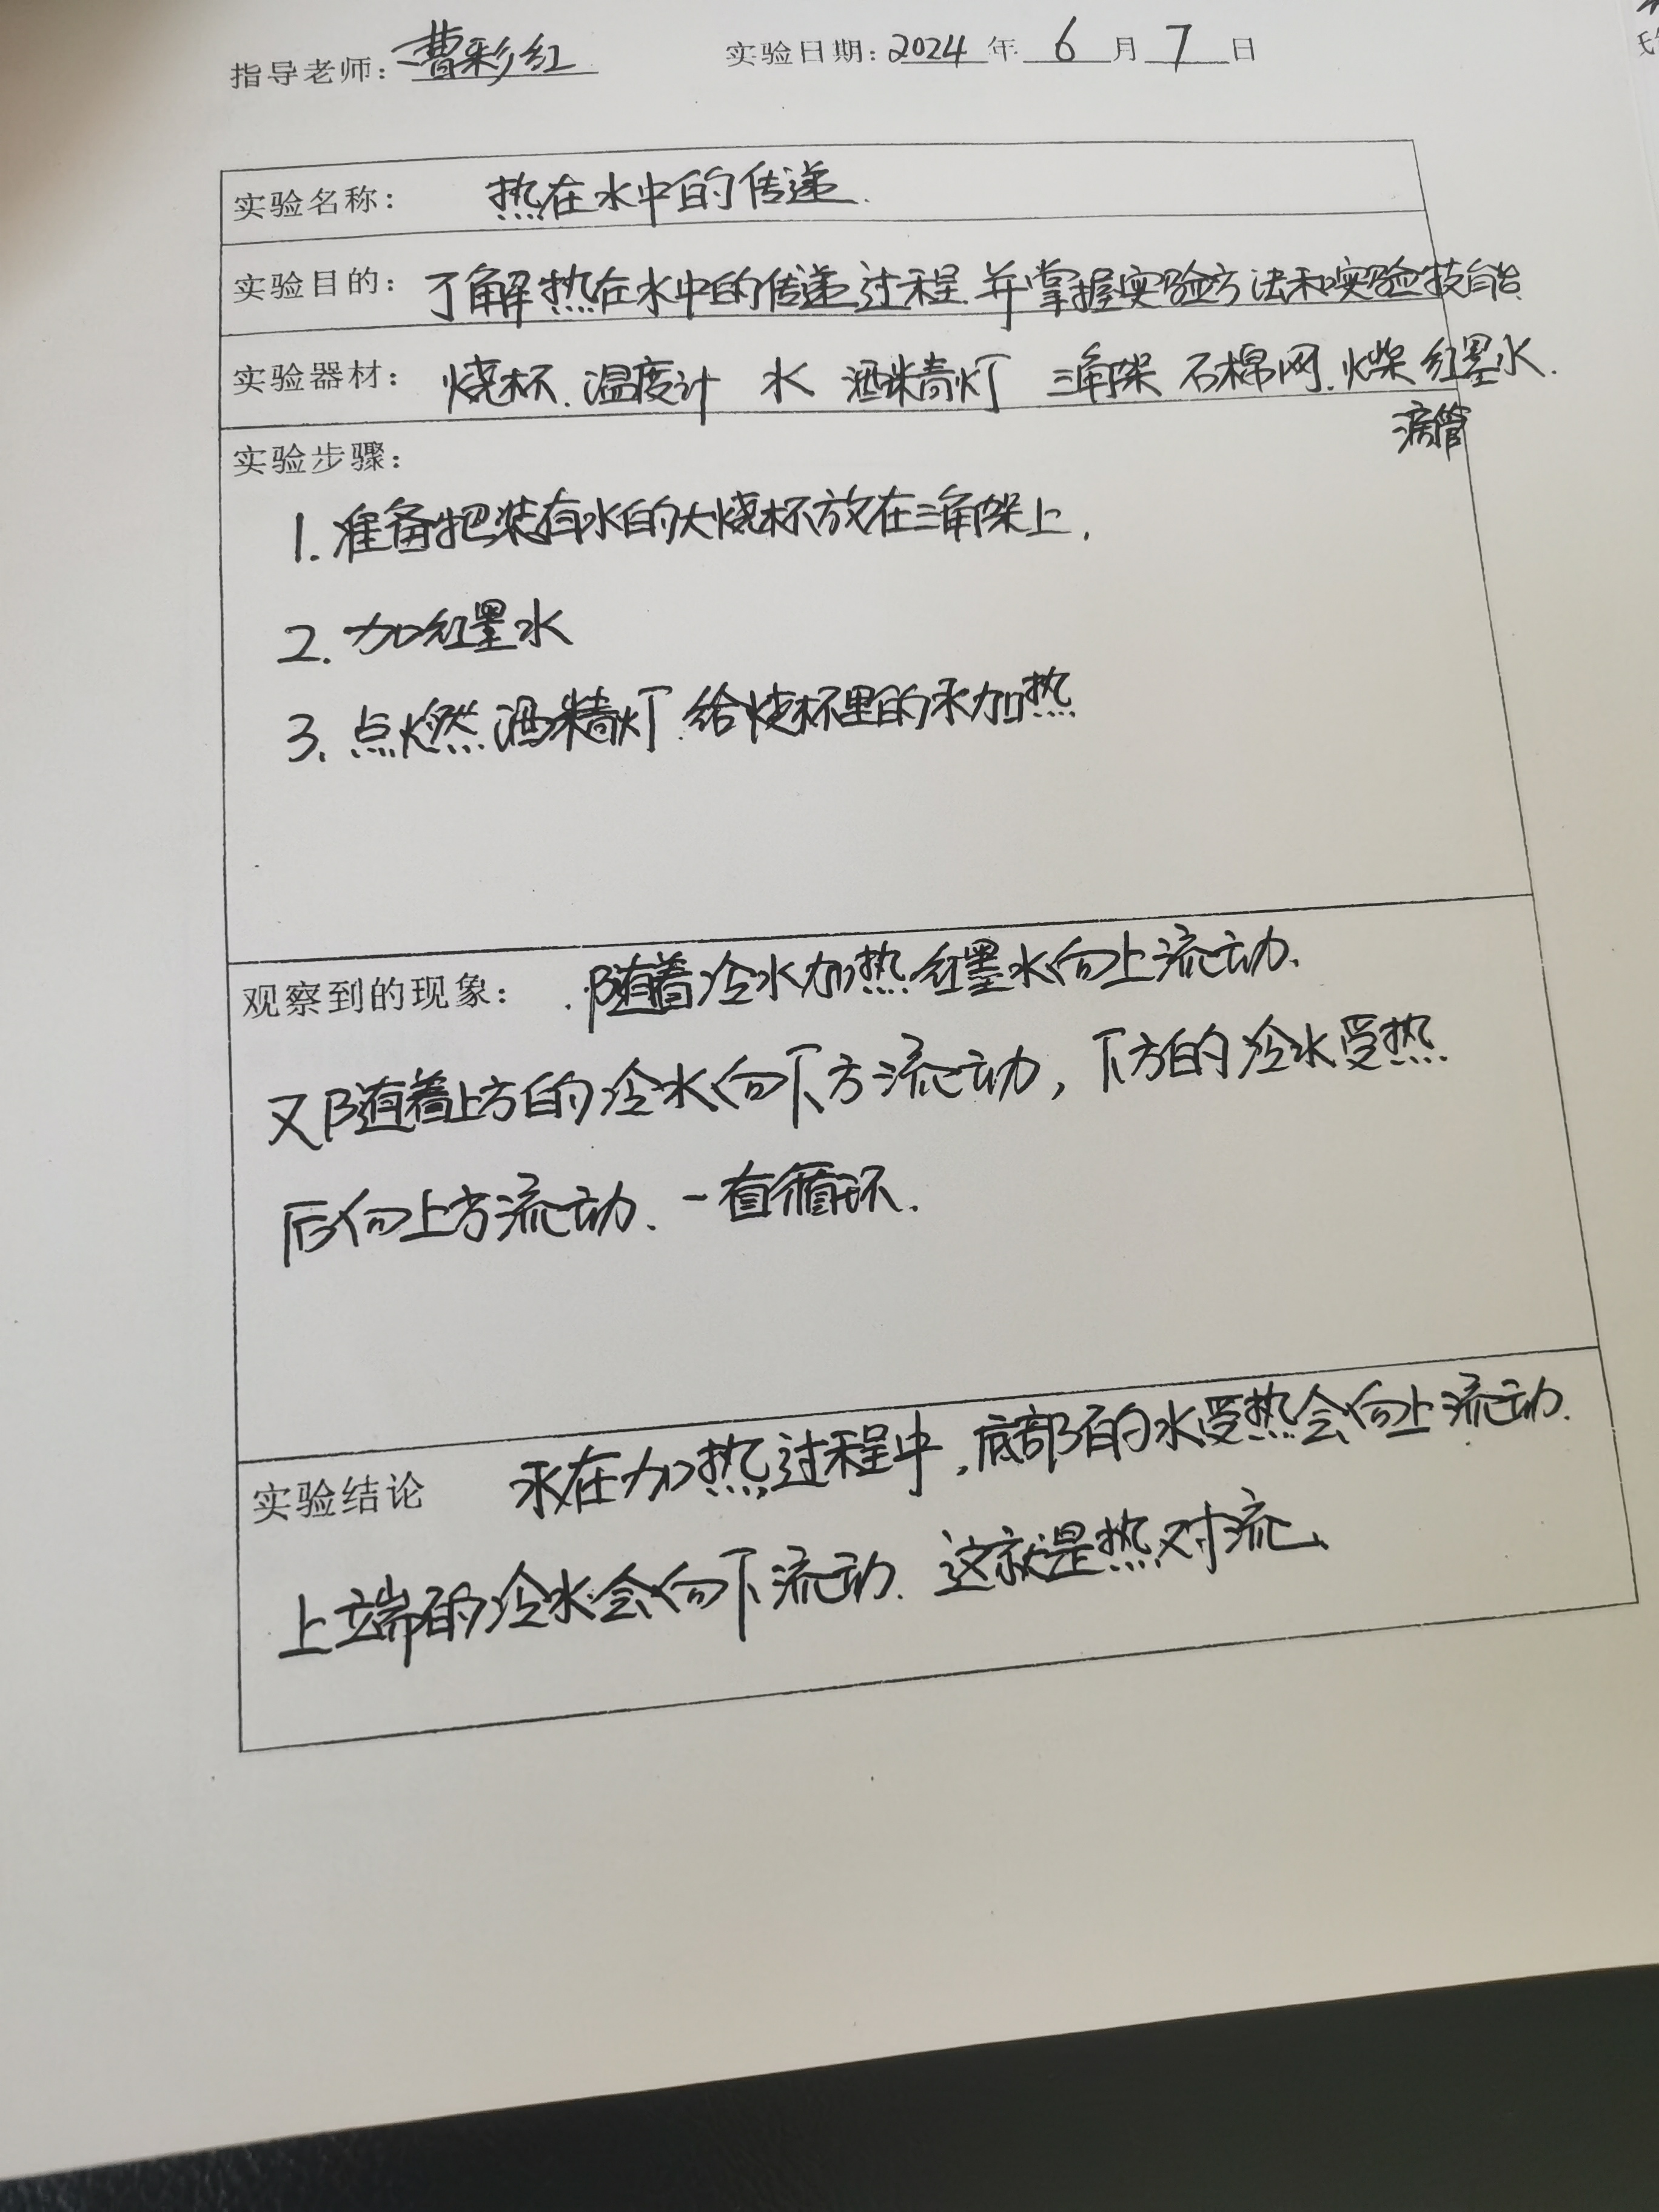 指导老师：曹彩红 实验日期：2024年 6 月 7 日
实验名称： 热在水中的传递.
实验目的：了解热在水中的传递过程.并掌握实验方法和实验技能
实验器材： 烧杯.温度计 水 酒精灯 三角架 石棉网.火柴 红墨水.
滴管
实验步骤：
1.准备把装有水的大烧杯放在三角架上,
2.加红墨水
3.点燃酒精灯.给烧杯里的水加热
观察到的现象： .随着冷水加热红墨水向上流动.
又随着上方的冷水向下方流动,下方的冷水受热
后向上方流动、一直循环.
实验结论 水在加热过程中,底部的水受热会向上流动.
上端的冷水会向下流动.这就是热对流、